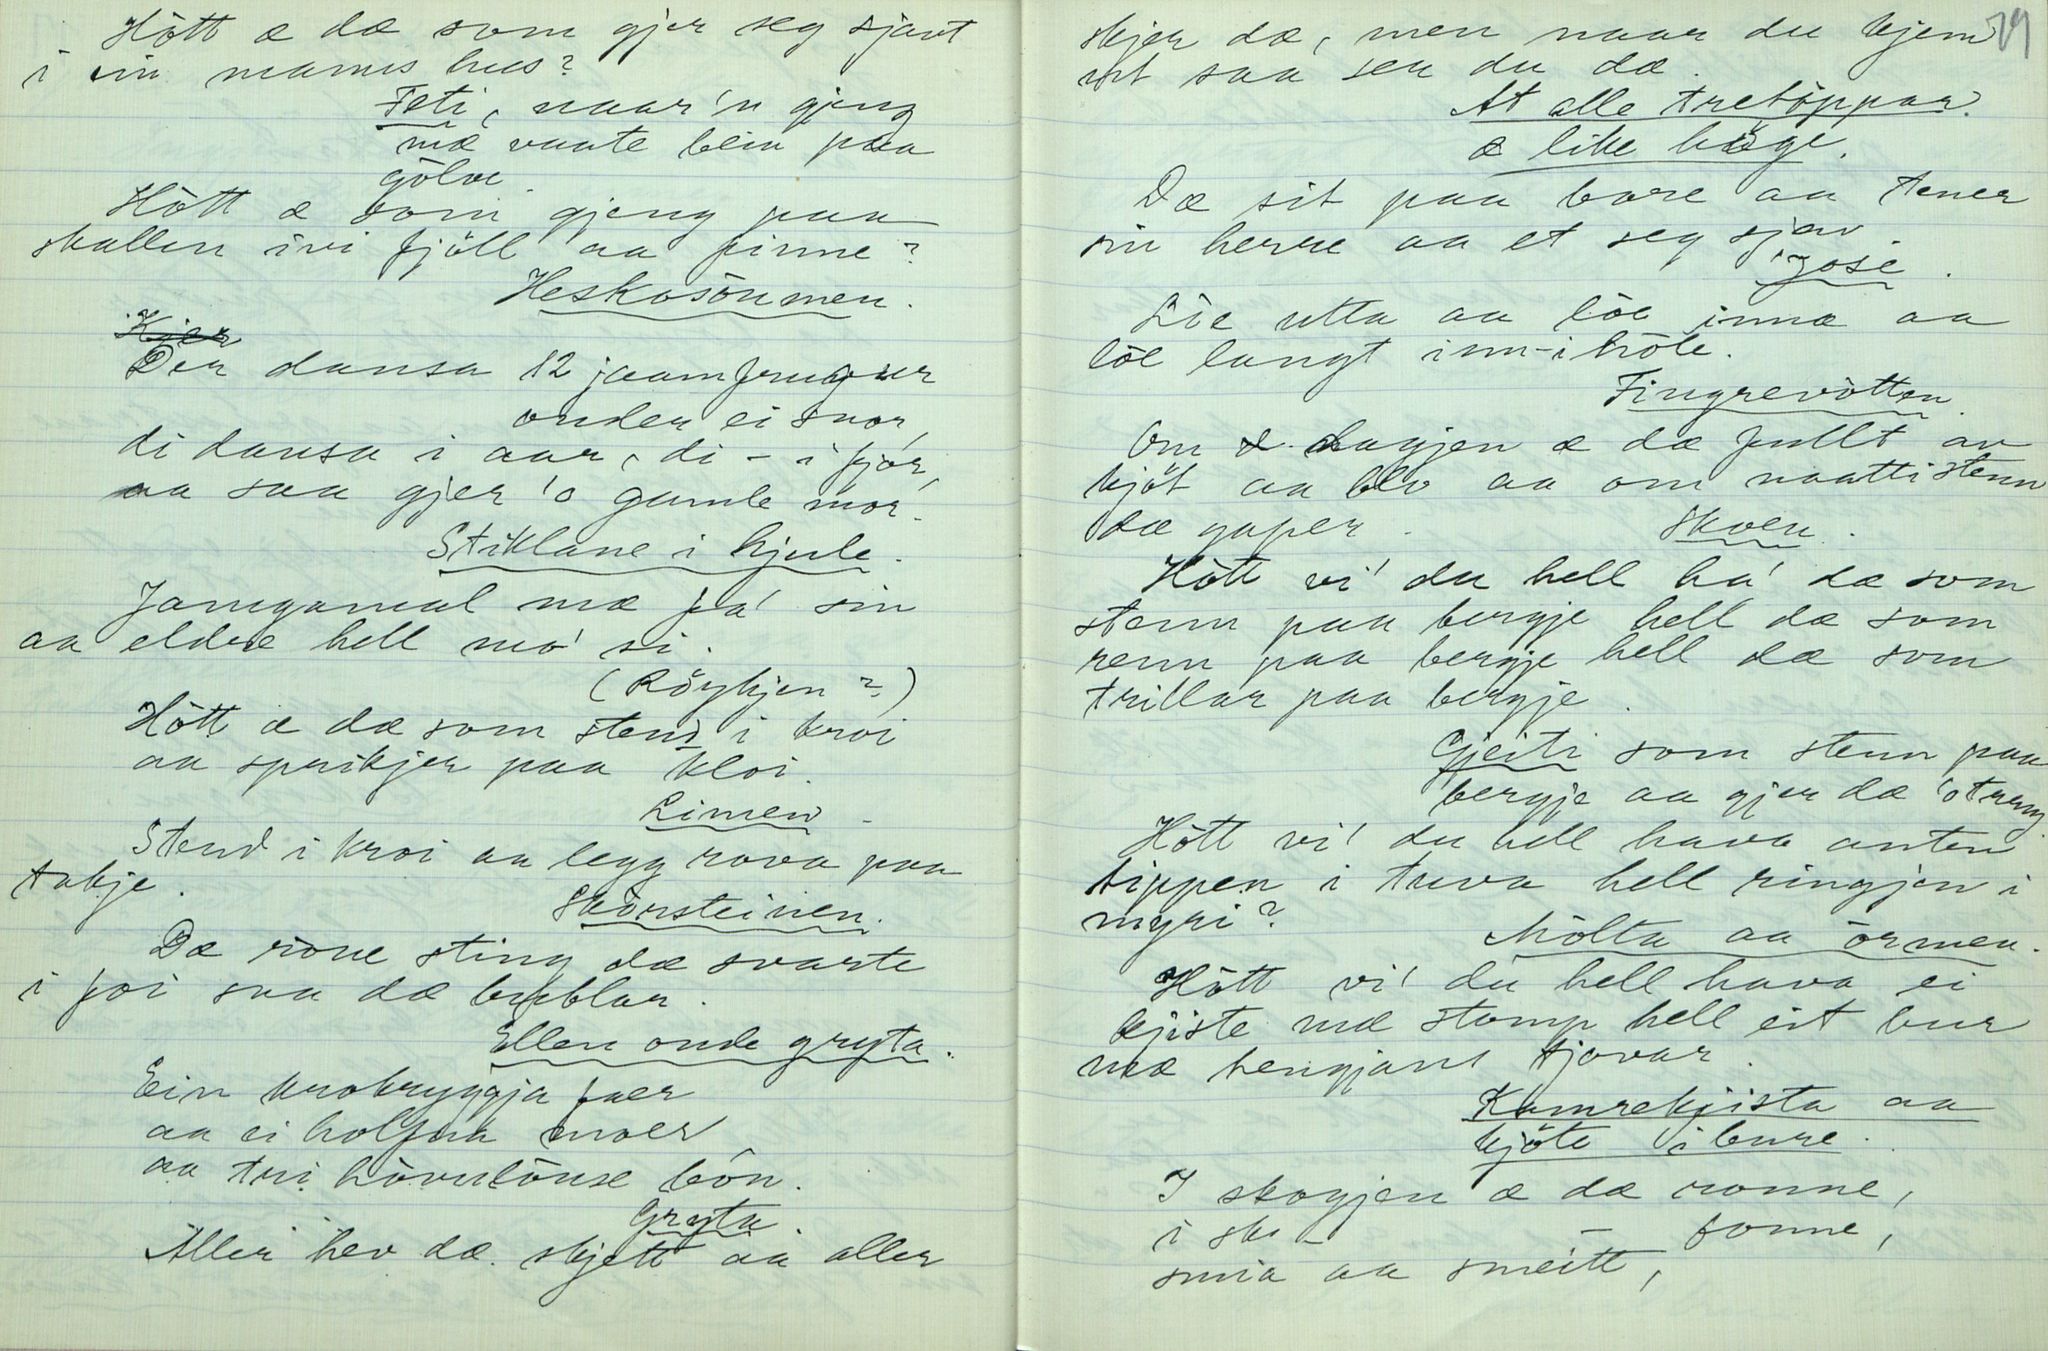 Hòtt æ dæ som gjer seg sjavt
i sin manns hus?
Feti, naar'n gjeng
mæ vaate bein paa
gòlve.
Hòtt æ som gjeng paa
skallen ivi fjöll aa finne?
Heskosòumen.
Kjer
Der dansa 12 jaamfrugur
onder ei snor,
di dansa i aar, di – i fjor,
aa saa gjer 'o gamle mor.
Stiklane i hjule.
Jamgamal mæ fa' sin
aa eldre hell mo' si.
(Röykjen?)
Hòtt æ dæ som stend i kroi
aa sprikjer paa kloi.
Limen
Stend i kroi aa legg rova paa
takje.
Skòrsteinen.
Dæ röue sting dæ svarte
i foi saa dæ bublar.
Ellen onde gryta.
Ein krokryggja faer
aa ei holfua moer
aa tri hòvulòuse bòn.
Gryta.
Aller hev dæ skjett aa aller
79
skjer dæ, men naar du kjem
ut saa ser du dæ.
At alle tretòppar
æ like høge.
Dæ sit paa bore aa tener
sin herre aa et seg sjav.
gose.
Löe utta aa löe innæ aa
löe langt inn-i hòle.
Fingrevòtten.
Om dagjen æ dæ fullt av
kjöt aa blo aa om naatti stenn
dæ gaper.
Skoen.
Hòtt vi' du hell ha' dæ som
stenn paa bergje hell dæ som
renn paa bergje hell dæ som
trillar paa bergje.
Gjeiti som stenn paa
bergje aa gjer dæ
Hòtt vi' du hell hava anten
tippen i tuva hell ringjen i
myri?
Mòlta aa òrmen.
Hòtt vi' du hell hava ei
kjiste mæ stomp hell eit bur
mæ hengjant tjovar.
Kamrekjista aa
kjöte i bure.
I skogjen æ dæ ronne,
i sk – – fonne,
smia aa smeitt,